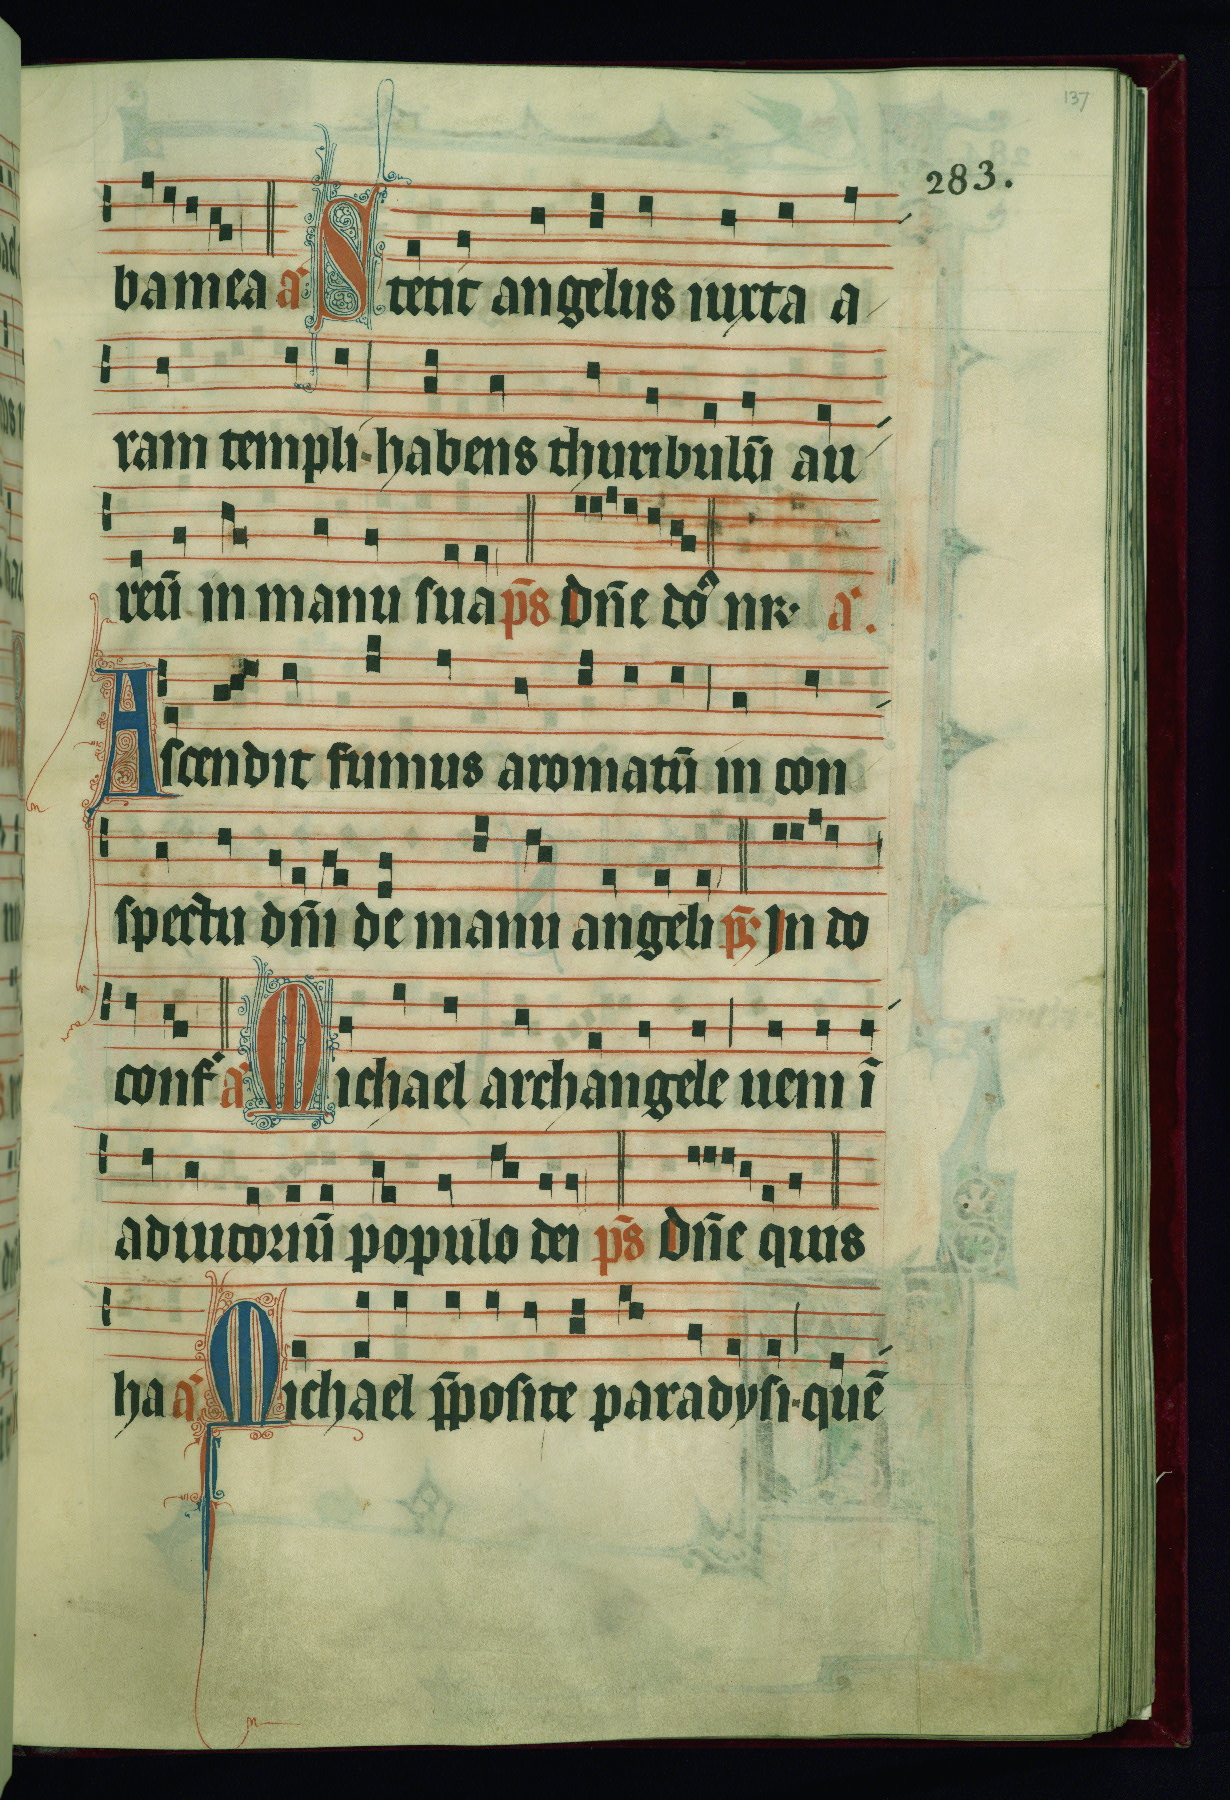 137
283.
ba mea a Stetit angelus iuxta a
ram templi · habens thuribulū au
reū in manu sua p̄s Dn̄e do nr a.
Ascendit fumus aromatū in con
spectu dn̄i de manu angeli p̄s In do
conf a Michael archangele ueni ī
adiutoriū populo dei p̄s Dn̄e quis
ha a Michael p̄posite paradysi · quē